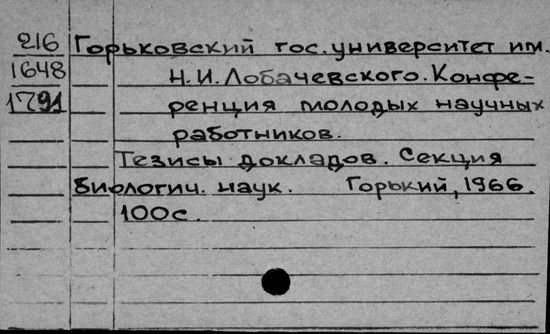 216 Горьковский гос. университет им.
1648 Н.И. Лобачевского. Конфе-
1791 ренция молодых научных
работников.
Тезисы докладов. Секция
биологич. наук. Горький, 1966.
100с.